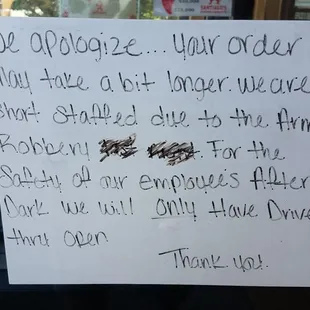 e apologize... Your order
May take a bit longer. we are
short staffed due to the Arm
Robbery. For the
Safety of our employee's After
Dark we will only Have Drive
thru open
Thank you.